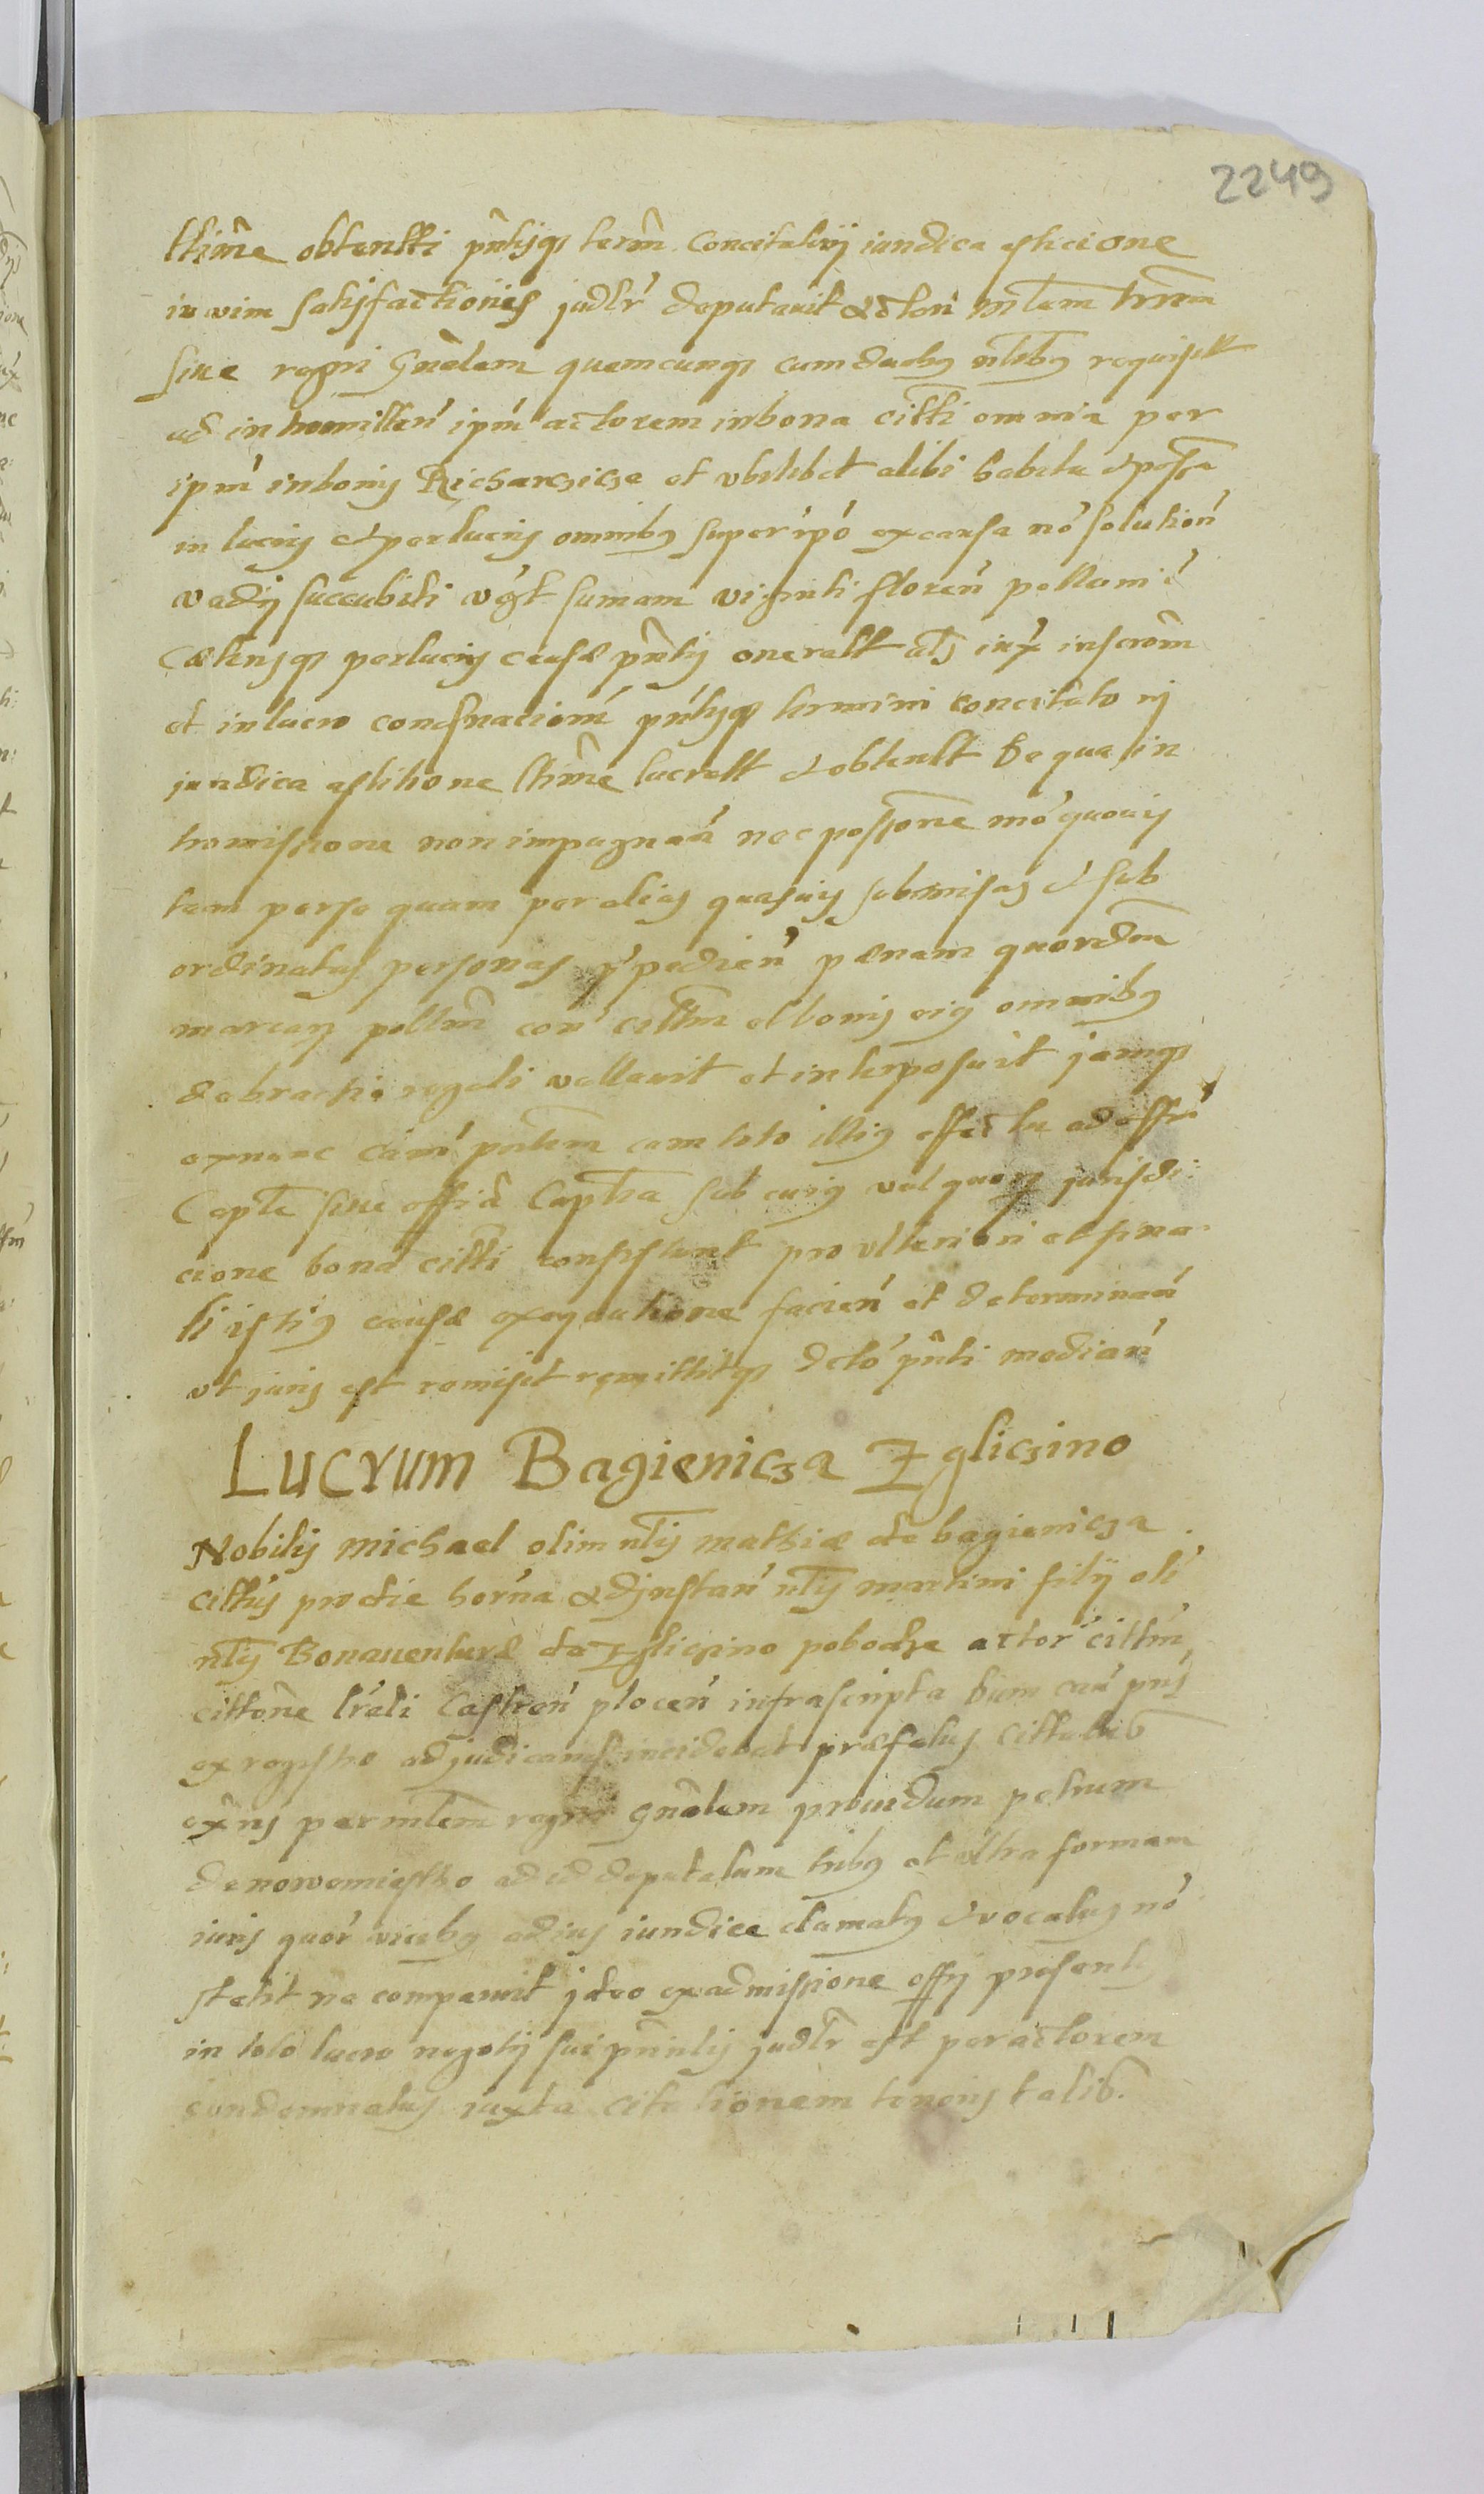 2249
ltime obtentti pntisqz term concitatorij iuridica asticione
in vim satisfactionis judtr deputavit actori mltem trrem
sive regni gnalem quemcunqz cum duobus nltbus requisitt
ad inhomitten ipm actorem in bona citti omnia per
ipm in bonis Richarczicze et ubilibet alibi habita et possa
in lucris et perlucris omnibus super ipo ex causa no solution
vadij succubiti vgt sumam viginti floren polloni
Caeterisqz perlucris causae pntis oneratt als iux inscrom
et in lucro condemnationis pntisqz termini concitato rij
juridica astitione ltime lucratt et obtentt De qua in
tromissione non impugnan nec possone mo quovis
tam per se quam per alias quasvis submissas et sub
ordinatas personas inpedien paenam quordm
marcarum polllm con cittm et bonis eius omnibus
de brachio regali vallavit et interposuit jamqz
ex nunc cam pntem cum toto illius effectu ad offm
Capte sive offia Captra sub cuius vel quorum jurisdi
cione bona citti consistunt pro ulteriori et fina
li istius causae exequutione facien et determinan
ut juris est remisit remittitqz dcto pnti median
Lucrum Bagienicza Zglicźino
Nobilis Michael olim nlis Mathiae de bagienicza
cittus pro die horna ad Jnstan nlis Martini filij oli
nlis Bonaventurae de Zgliczino pobodze actor cittm
cittone lrali Castren plocen infrascripta Dum cau pns
ex regestro ad judicium incidebat praefatus cittatus
exns per mltem regni gnalem providum petrum
de nowemiastho ad id deputatum tribus et ultra formam
iuris quor vicibus ad jus iuridice clamatus et vocatus no
stetit ne comparuit jdeo ex admissione offij presentis
in toto lucro negotij sui pnntis judtr est per actorem
condemnatus iuxta citationem tenoris talis.